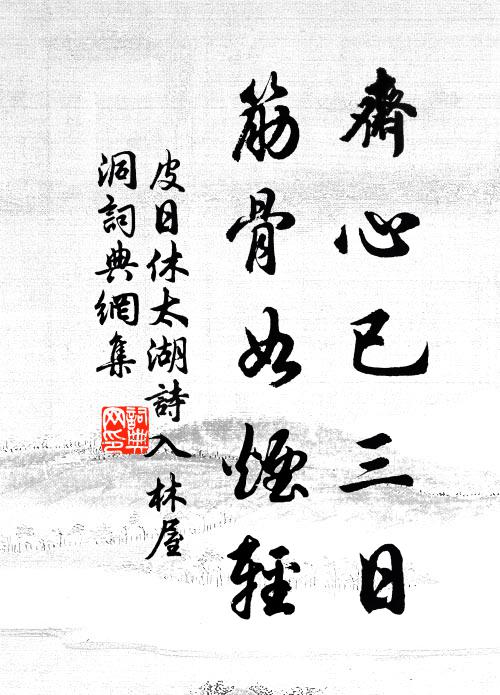 齋心已三日
筋骨如煙輕
皮日休太湖詩入林屋
洞詞典網集
詞典
网印